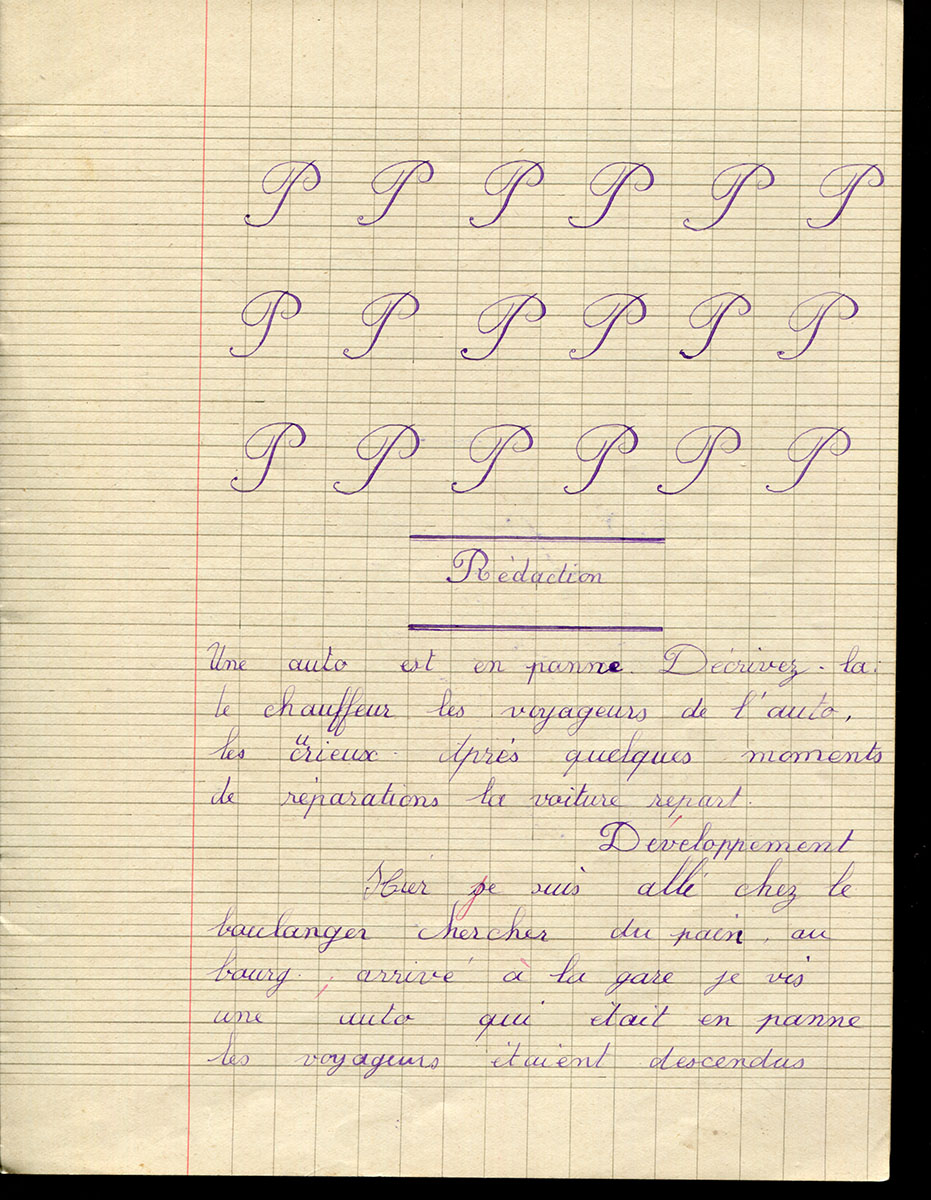 P P P P P P
P P P P P P
P P P P P P
Rédaction
Une auto est en panne. Décrivez-la:
le chauffeur les voyageurs de l'auto,
les curieux. Après quelques moments
de réparations la voiture repart.
Développement
Hier je suis allé chez le
boulanger chercher du pain, au
bourg, arrivé à la gare je vis
une auto qui était en panne
les voyageurs étaient descendus